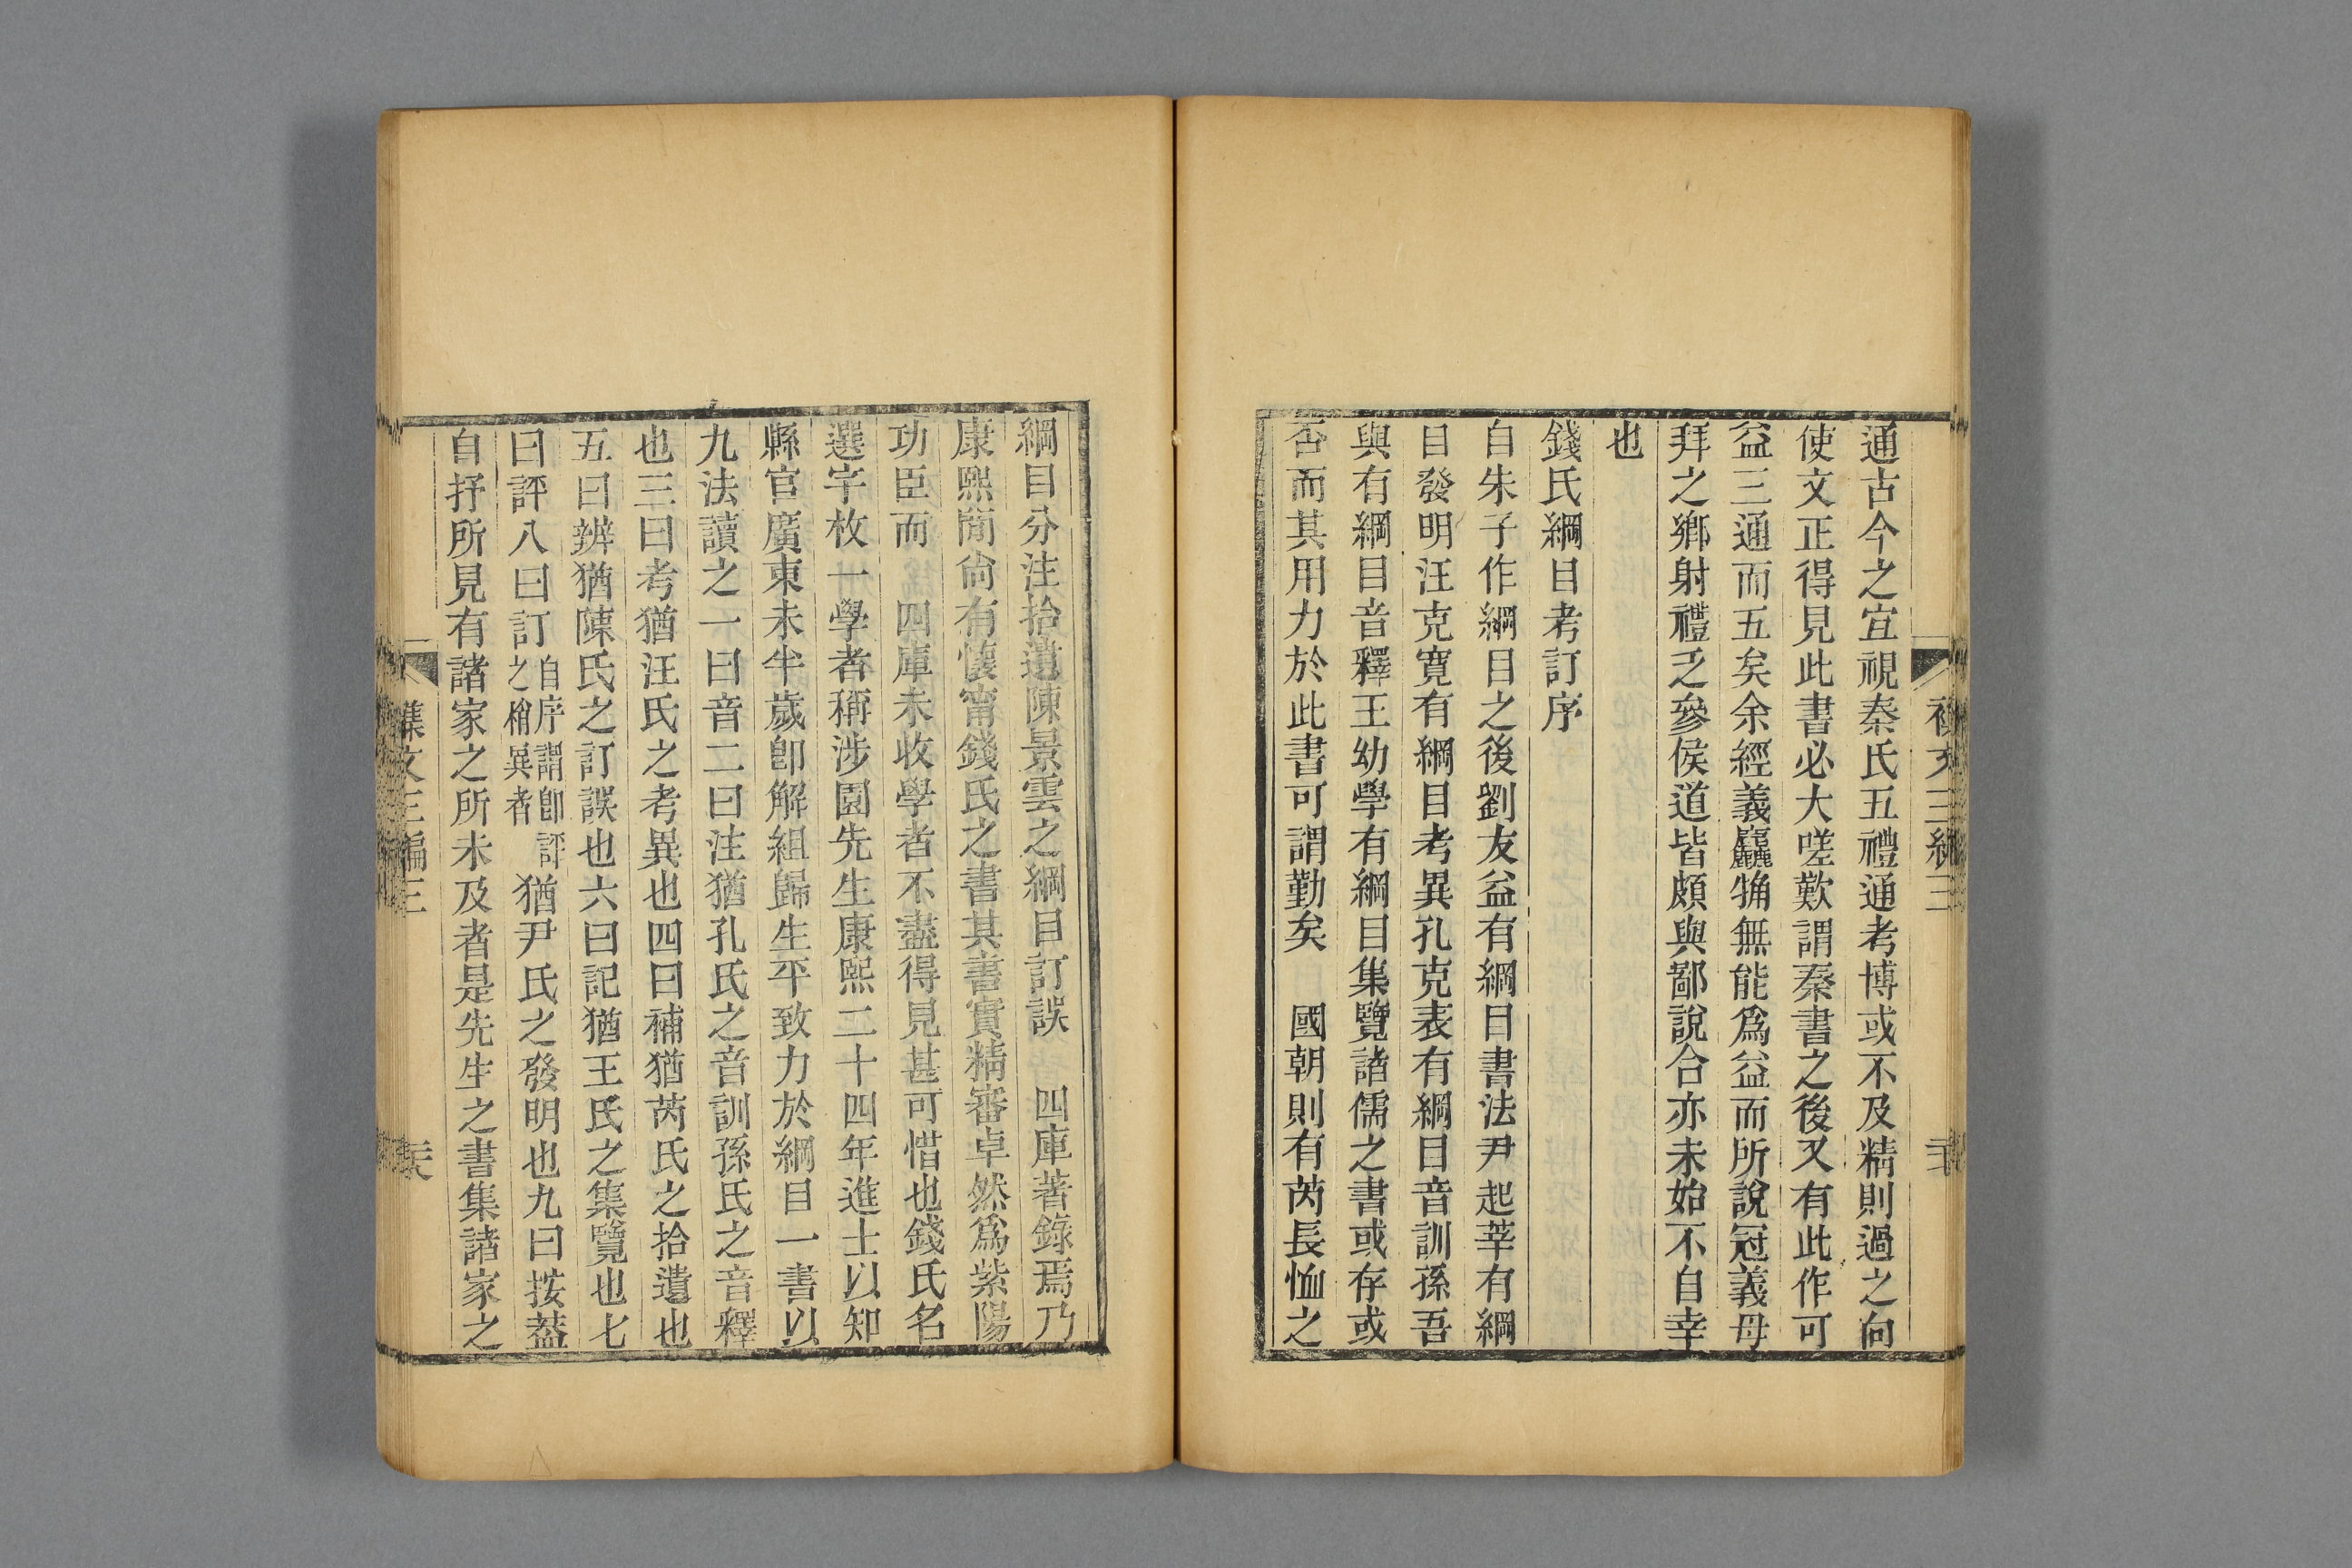 通古今之宜視秦氏五禮通考博或不及精則過之向
使文正得見此書必大嗟歎謂秦書之後又有此作可
益三通而五矣余經義麤觕無能爲益而所說冠義母
拜之鄉射禮乏參侯道皆頗與鄙說合亦未始不自幸
也
錢氏綱目考訂序
自朱子作綱目之後劉友益有綱目書法尹起莘有綱
目發明汪克寬有綱目考異孔克表有綱目音訓孫吾
與有綱目音釋王幼學有綱目集覽諸儒之書或存或
否而其用力於此書可謂勤矣 國朝則有芮長恤之
綱目分注拾遺陳景雲之綱目訂誤 四庫著錄焉乃
康熙閒尙有懷甯錢氏之書其書實精審卓然爲紫陽
功臣而 四庫未收學者不盡得見甚可惜也錢氏名
選字枚一學者稱涉園先生康熙二十四年進士以知
縣官廣東未半歲卽解組歸生平致力於綱目一書以
九法讀之一曰音二曰注猶孔氏之音訓孫氏之音釋
也三曰考猶汪氏之考異也四曰補猶芮氏之拾遺也
五曰辨猶陳氏之訂誤也六曰記猶王氏之集覽也七
曰評八曰訂自序謂卽評之稍異者猶尹氏之發明也九曰按蓋
自抒所見有諸家之所未及者是先生之書集諸家之
襍文三編三